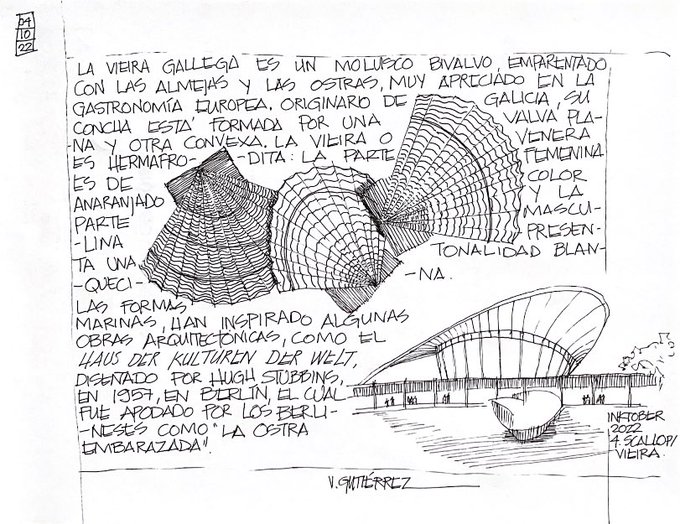 04
10
22
LA VIEIRA GALLEGA ES UN MOLUSCO BIVALVO, EMPARENTADO
CON LAS ALMEJAS Y LAS OSTRAS, MUY APRECIADO EN LA
GASTRONOMÍA EUROPEA. ORIGINARIO DE GALICIA, SU
CONCHA ESTÁ FORMADA POR UNA VALVA PLA-
-NA Y OTRA CONVEXA. LA VIEIRA O VENERA
ES HERMAFRO- -DITA: LA PARTE FEMENINA
ES DE COLOR
ANARANJADO Y LA
PARTE MASCU-
-LINA PRESEN-
TA UNA TONALIDAD BLAN-
-QUECI- -NA.
LAS FORMAS
MARINAS, HAN INSPIRADO ALGUNAS
OBRAS ARQUITECTÓNICAS, COMO EL
HAUS DER KULTUREN DER WELT,
DISEÑADO POR HUGH STUBBINS,
EN 1957, EN BERLÍN, EL CUAL
FUE APODADO POR LOS BERLI-
-NESES COMO "LA OSTRA
EMBARAZADA".
INKTOBER
2022
4. SCALLOP/
VIEIRA.
V. GUTIÉRREZ